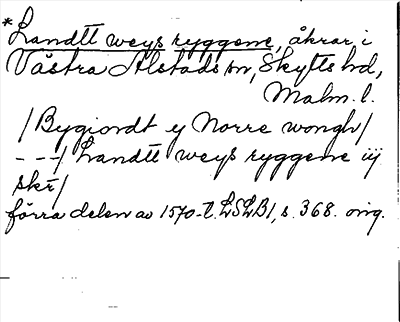 *Landtt weys ryggene, åkrar i
Västra Alstads sn, Skytts hd,
Malm. l.
/Bygiordt y Norre wongh/
---/ Landtt weys ryggene iij
skr̄/
förra delen av 1570-t. LSLB1, s. 368. orig.